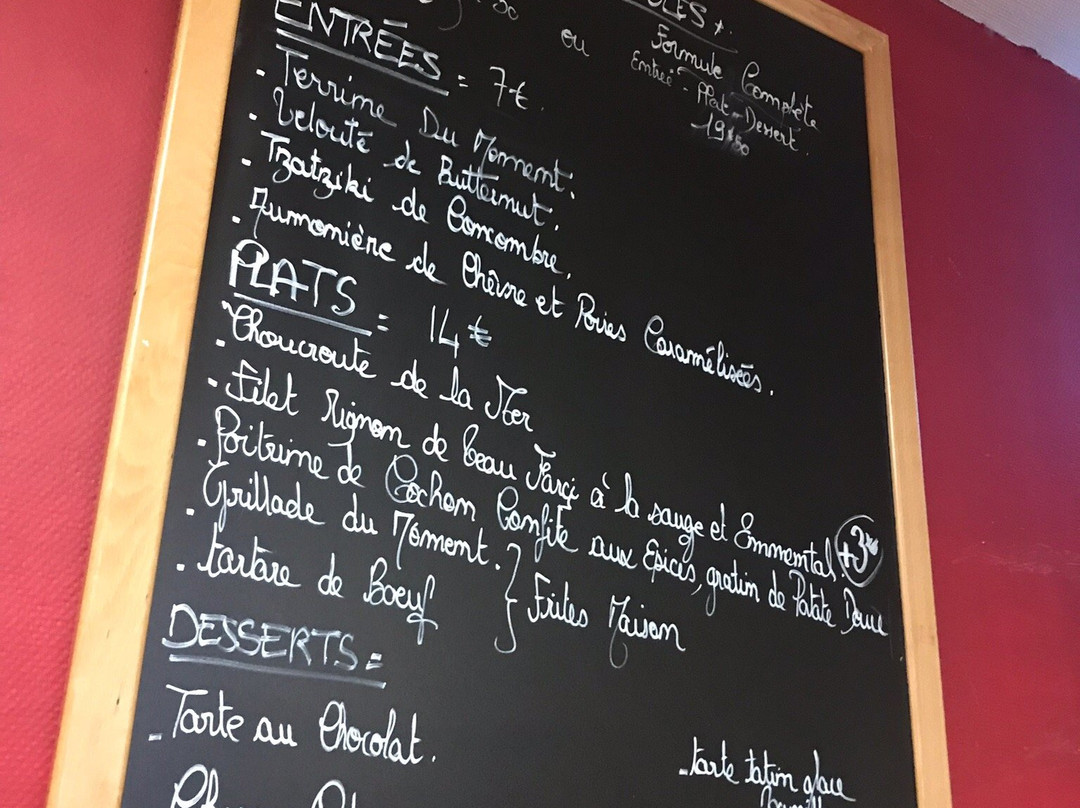 Formule Complète
ou
Entrée - Plat - Dessert.
19€50
ENTRÉES = 7€.
. Terrine Du Moment.
. Velouté de Butternut.
. Tzatziki de Concombre.
. Aumonière de Chèvre et Poires Caramélisées.
PLATS = 14 €
. Choucroute de la Mer
. Filet Mignon de Veau Farçi à la sauge et Emmental. +3€
. Poitrine de Cochon Confite aux Epices, gratin de Patate Douce
. Grillade du Moment.
. tartare de Boeuf } Frites Maison
DESSERTS =
- Tarte au Chocolat.
- tarte tatin glace